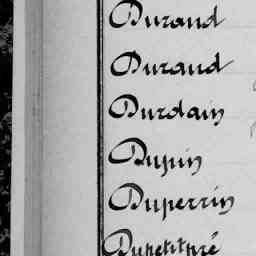 Durand
Durand
Durdain
Dupin
Duperrin
Dupetitpré